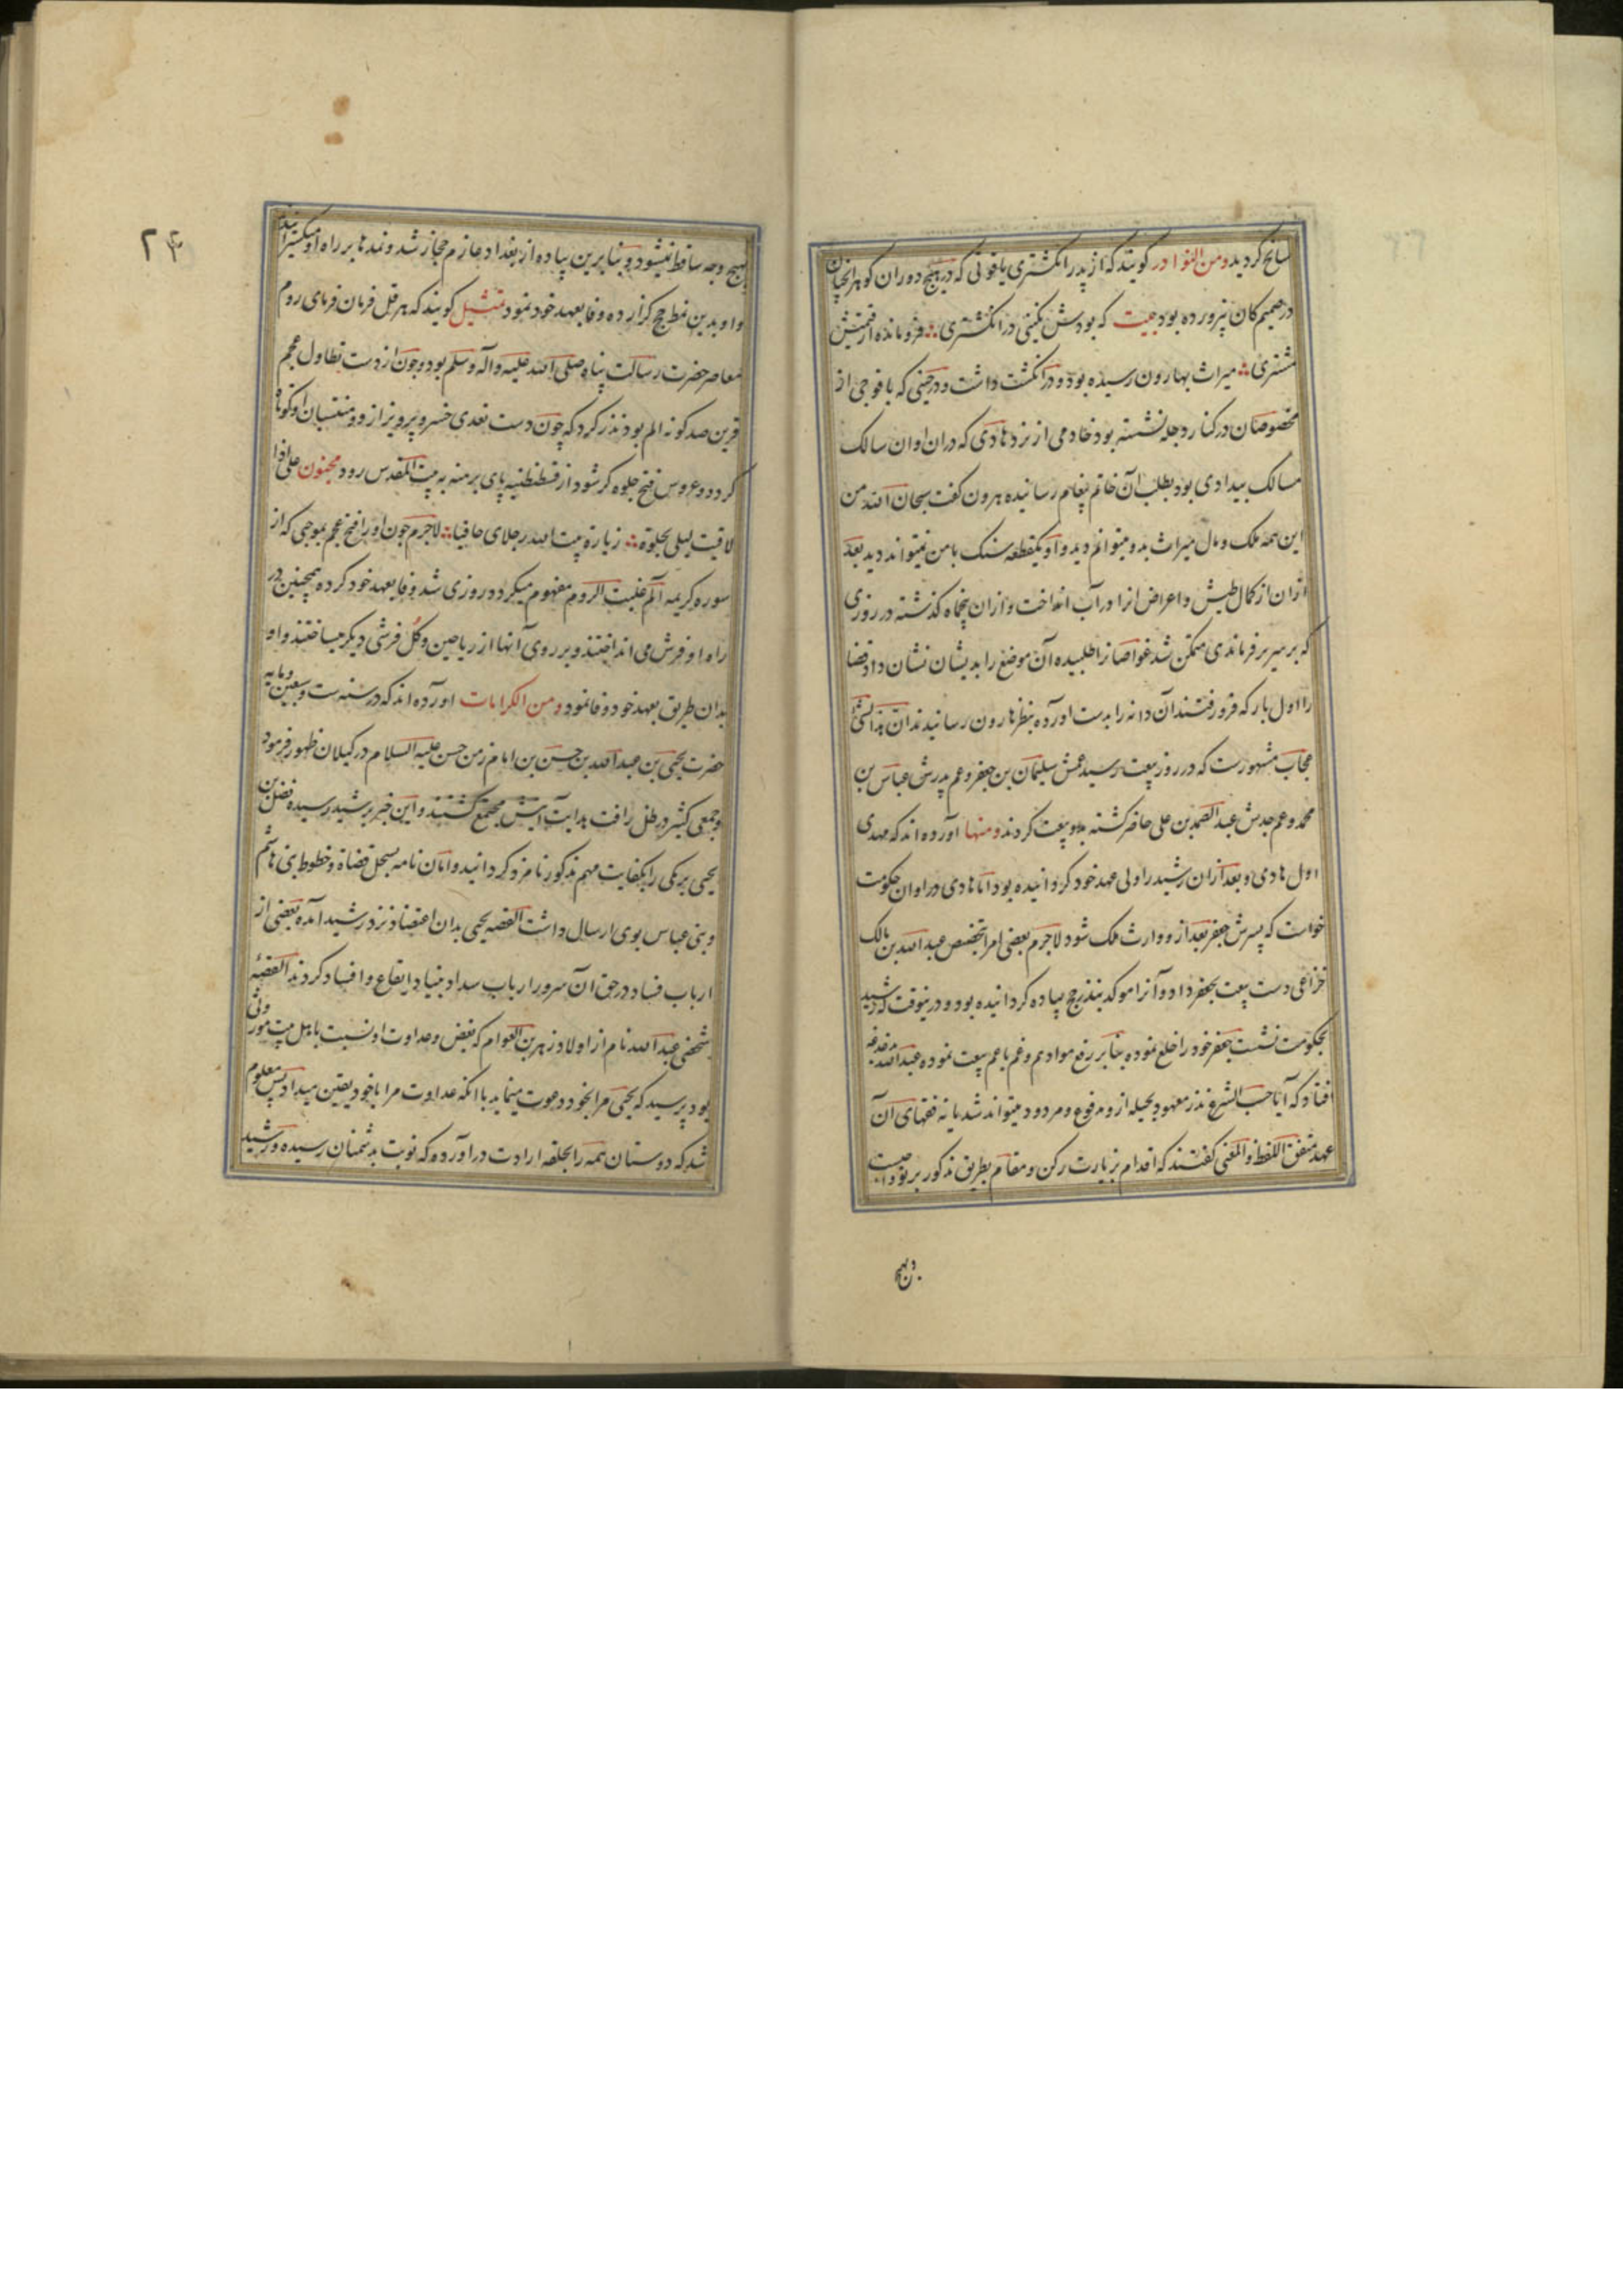 سانح کردید ومن النوادر کویند که از پدر انکشتری یاقوتی که در هیچ دوران کوهر انچنان
در صمیم کان نپرورده بود بیت که بودش نکینی در انکشتری ؞ فرو مانده از قیمتش
مشتری ؞ میراث بهارون رسیده بود و در انکشت داشت و در حینی که با فوجی از
مخصوصان در کنار دجله نشسته بود خادمی از نزد هادی که دران اوان سالک
مسالک بیدادی بود بطلب آن خاتم پیغام رسانیده هرون کفت سبحان الله من
این همه ملک و مال میراث بدو میتوانم دید و او یکقطعه سنک با من نمیتواند دید بعد
ازان از کمال طیش و اعراض انرا در آب انداخت و ازان پنجاه کذشته در روزی
که بر سریر فرماندی متمکن شد غواصانرا طلبیده آن موضع را بدیشان نشان داد قضا
را اول بار که فرو رفتند آن دانه را بدست اورده بنظر هارون رسانیدند ان هذا لشئ
عجاب مشهورست که در روز بیعت رسید عمش سلیمان بن جعفر و عم پدرش عباس بن
محمد و عم جدش عبد الصمد بن علی حاضر کشته بدو بیعت کردند ومنها آورده اند که مهدی
اول هادی و بعد ازان رشید را ولی عهد خود کردانیده بود اما هادی در اوان حکومت
خواست که پسرش جعفر بعد از و وارث ملک شود لاجرم بعضی امرا بتخصیص عبد الله بن مالک
خزاعی دست بیعت بجعفر داد و آنرا موکد بنذر حج پیاده کردانیده بود و درینوقت که رشید
بحکومت نشست جعفر خود را خلع نموده بنابر رفع مواد هم و غم با عم بیعت نموده عبد الله
افتاد که آیا حسب الشرع نذر معهود بحیله ازو مرفوع و مردود میتواند شد یا نه فقهای آن
عهد متفق اللفظ والمعنی کفتند که اقدام بزیارت رکن و مقام بطریق مذکور بر تو واجبست
وبهیچ
۲۴
بهیچ وجه ساقط نمیشود و بنابرین پیاده از بغداد عازم حجاز شد و نمدها بر راه او میکسترانیدند
و او بدین نمط حج کزارده وفا بعهد خود نمود تمثیل کویند که هرقل فرمان فرمای روم
معاصر حضرت رسالت پناه صلی الله علیه وآله وسلم بود و چون از دست تطاول عجم
قرین صد کونه الم بود نذر کرد که چون دست تعدی خسرو پرویز ازو و منتسبان او کوتاه
کردد و عروس فتح جلوه کر شود از قسطنطنیه پای برهنه به بیت المقدس رود مجنون علی اذا
لاقیت لیلی بخلوة ؞ زیارة بیت الله رجلای حافیا ؞ لاجرم چون او را فتح عجم بموجبی که از
سوره کریمه الم غلبت الروم مفهوم میکردد روزی شد وفا بعهد خود کرده همچنین در
راه او فرش می انداختند و بر روی آنها از ریاحین و کل فرشی دیکر میساختند و او
بدان طریق بعهد خود وفا نمود ومن الکرامات اورده اند که در سنه ست وسبعین ومایه
حضرت یحیی بن عبد الله بن حسن بن امام زمن حسن علیه السلام در کیلان ظهور فرمود
و جمعی کثیر در ظل رافت هدایت آیتش مجتمع کشتند و این خبر برشید رسیده فضل بن
یحیی برمکی را بکفایت مهم مذکور نامزد کردانید و امان نامه بسجل قضاة و خطوط بنی هاشم
و بنی عباس بوی ارسال داشت القصه یحیی بدان اعتضاد نزد رشید آمده بعضی از
ارباب فساد در حق آن سرور ارباب سداد بنیاد ایقاع و افساد کردند القصه
شخصی عبد الله نام از اولاد زهر بن العوام که بغض وعداوت او نسبت باهل بیت موروثی
بود پرسید که یحیی مرا بخود دعوت مینماید با انکه عداوت مرا با خود یقین میداد پس معلوم
شد که دوستان همه را بحلقه ارادت در آورده که نوبت بدشمنان رسیده و رشید